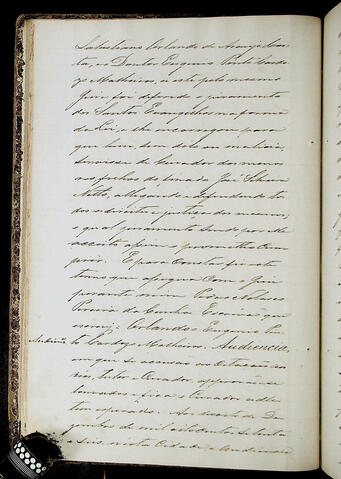 Sebastiano Orlando de Araujo Cos-
ta, ao Doutor Eugenio Pinto Cardo-
zo Malheiros, a este pelo mesmo
Juiz foi diferido o juramento
dos Santos Evangelhos na forma
da Lei, e lhe encarregou para
que bem, sem dolo ou malicia,
servisse de Curador dos menores
os filhos do finado José
Netto, allegando e defendendo to-
dos os direitos e justiças dos mesmos;
e que o juramento sendo por elle
acceito assim o prometteu cum-
prir. E para constar fiz este
termo que assigna com o Juiz
perante mim
Pereira da Cunha Escrivão que
escrevi. Orlando Eugenio Pin-
to Cardozo Malheiros. Audiencia,
Audiencia
em que se accusou as citações
tutor e Curador, approvou-se
louvados e fica o Curador
Aos de De-
zembro de mil oitocentos setenta
e seis, nesta Cidade, e audiencia